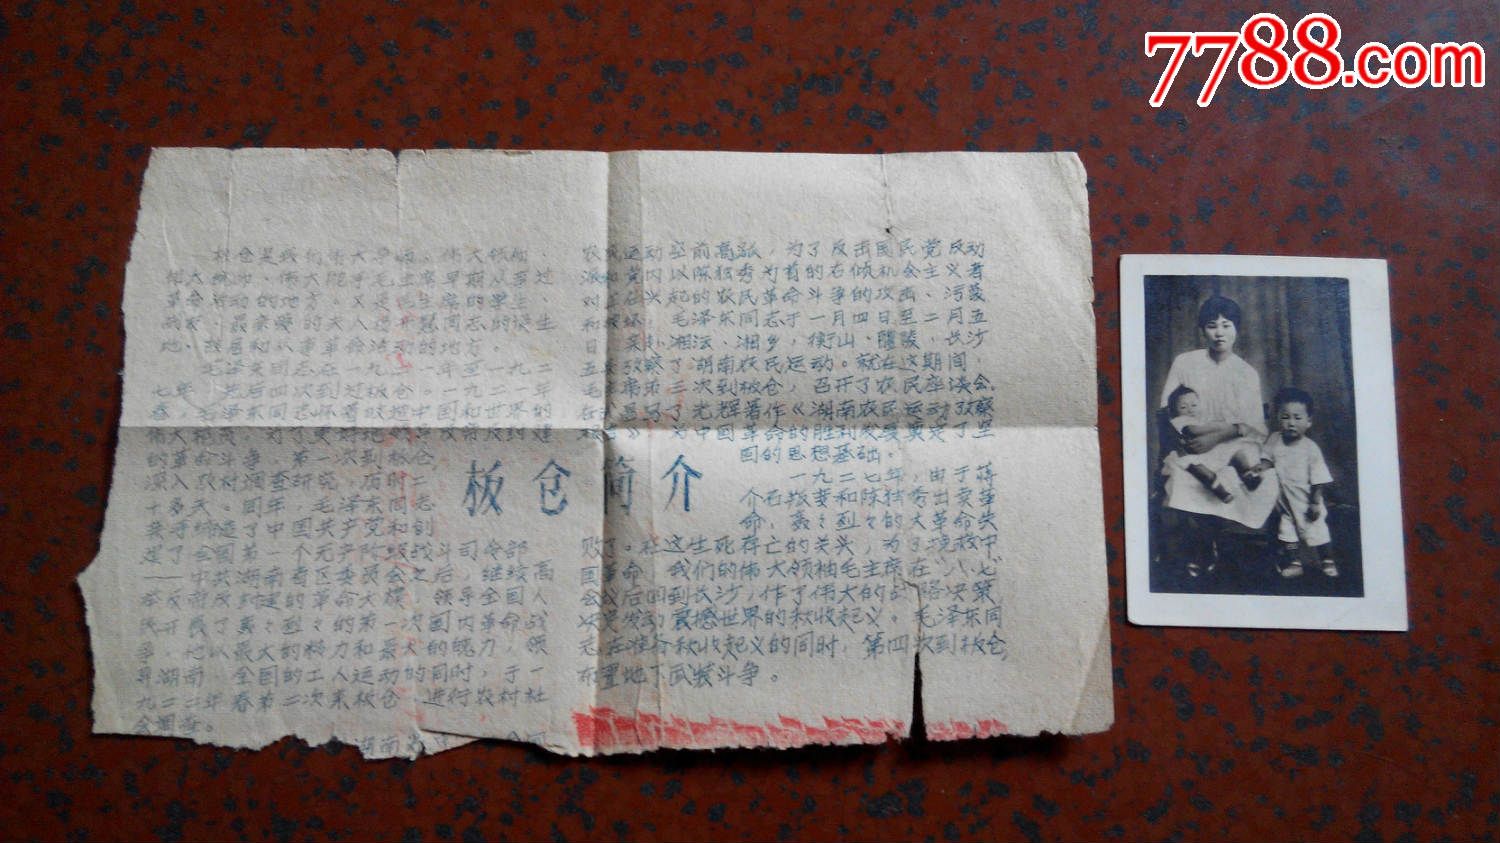 7788.com
板仓是我们伟大导师、伟大领袖、
伟大统帅、伟大舵手毛主席早期从事过
革命活动的地方。又是毛主席的学生、
战友、最亲爱的夫人杨开慧同志的诞生
地、故居和从事革命活动的地方。
毛泽东同志在一九二一年至一九二
七年 先后四次到过板仓。一九二一年
春，毛泽东同志怀着改把中国和世界的
伟大抱负，为了更好地领导反帝反封建
的革命斗争 第一次到板仓
深入农村调查研究，历时二
十多天。同年，毛泽东同志
亲手缔造了中国共产党和创
建了全国第一个无产阶级战斗司令部
——中共湖南省区委员会之后，继续高
举反帝反封建的革命大旗 领导全国人
民开展了轰々烈々的第一次国内革命战
争，他以最大的精力和最大的魄力，领
导湖南 全国的工人运动的同时，于一
九二二年春第二次来板仓 进行农村社
会调查。
板仓简介
农民运动空前高涨，为了反击国民党反动
派和党内以陈独秀为首的右倾机会主义者
对正在兴起的农民革命斗争的攻击、污蔑
和破坏，毛泽东同志于一月四日至二月五
日 实赴湘沄、湘乡，衡山、醴陵，长沙
五县考察了湖南农民运动。就在这期间，
毛主席第三次到板仓，召开了农民座谈会。
在 写了光辉著作《湖南农民运动考察
报告》 为中国革命的胜利发展奠定了坚
固的思想基础。
一九二七年，由于蒋
介石叛变和陈独秀出卖革
命，轰々烈々的大革命失
败了。在这生死存亡的关头，为了挽救中
国革命 我们的伟大领袖毛主席在“八七”
会议后回到长沙，作了伟大的战略决策
决定发动震撼世界的秋收起义。毛泽东同
志在准备秋收起义的同时，第四次到板仓，
布置地下武装斗争。
湖南